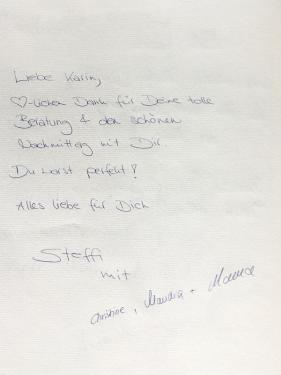 Liebe Karin,
♡-lichen Dank für Deine tolle
Beratung & den schönen
Nachmittag mit Dir.
Du warst perfekt!
Alles liebe für Dich
Steffi
mit
Christine, Claudia + Mama